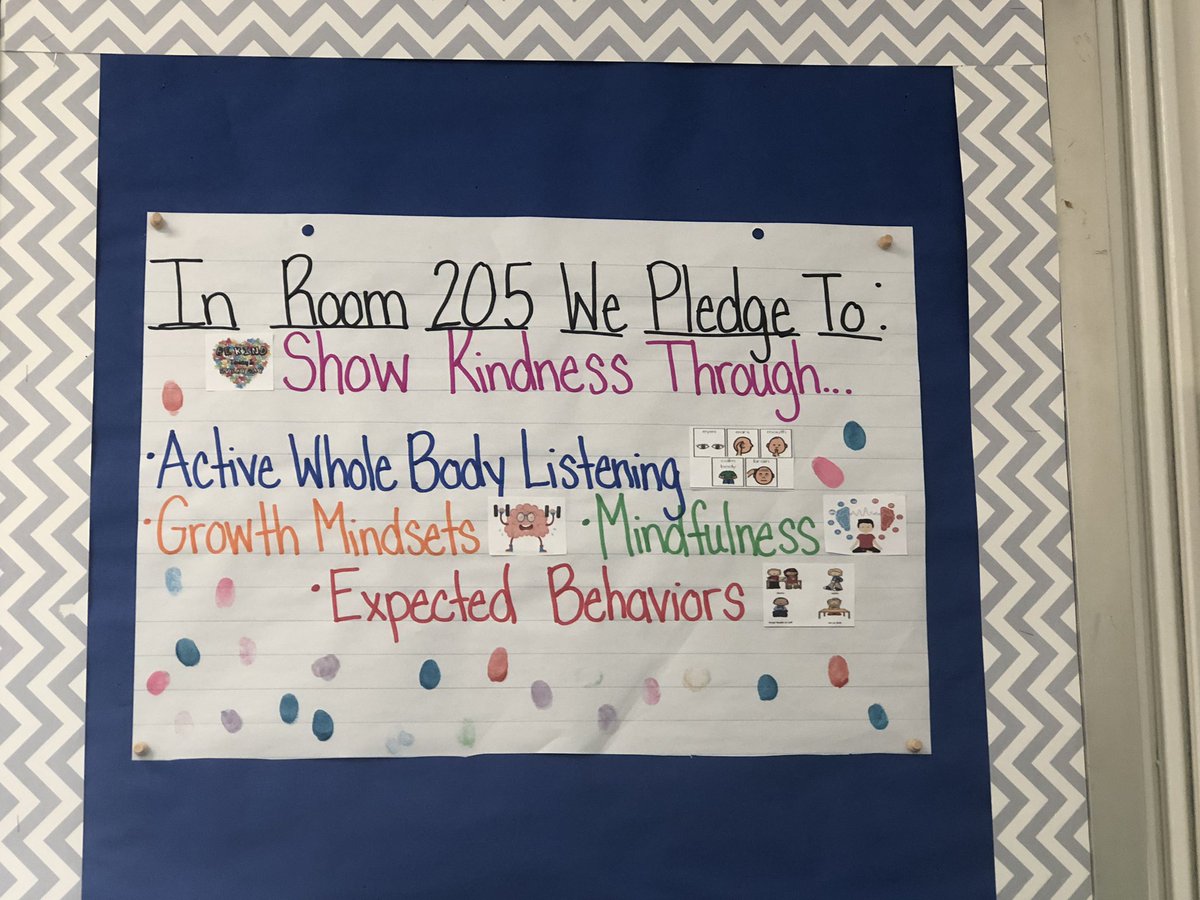 In Room 205 We Pledge To:
Show Kindness Through...
• Active Whole Body Listening
eyes ears mouth
calm body brain
• Growth Mindsets • Mindfulness
• Expected Behaviors